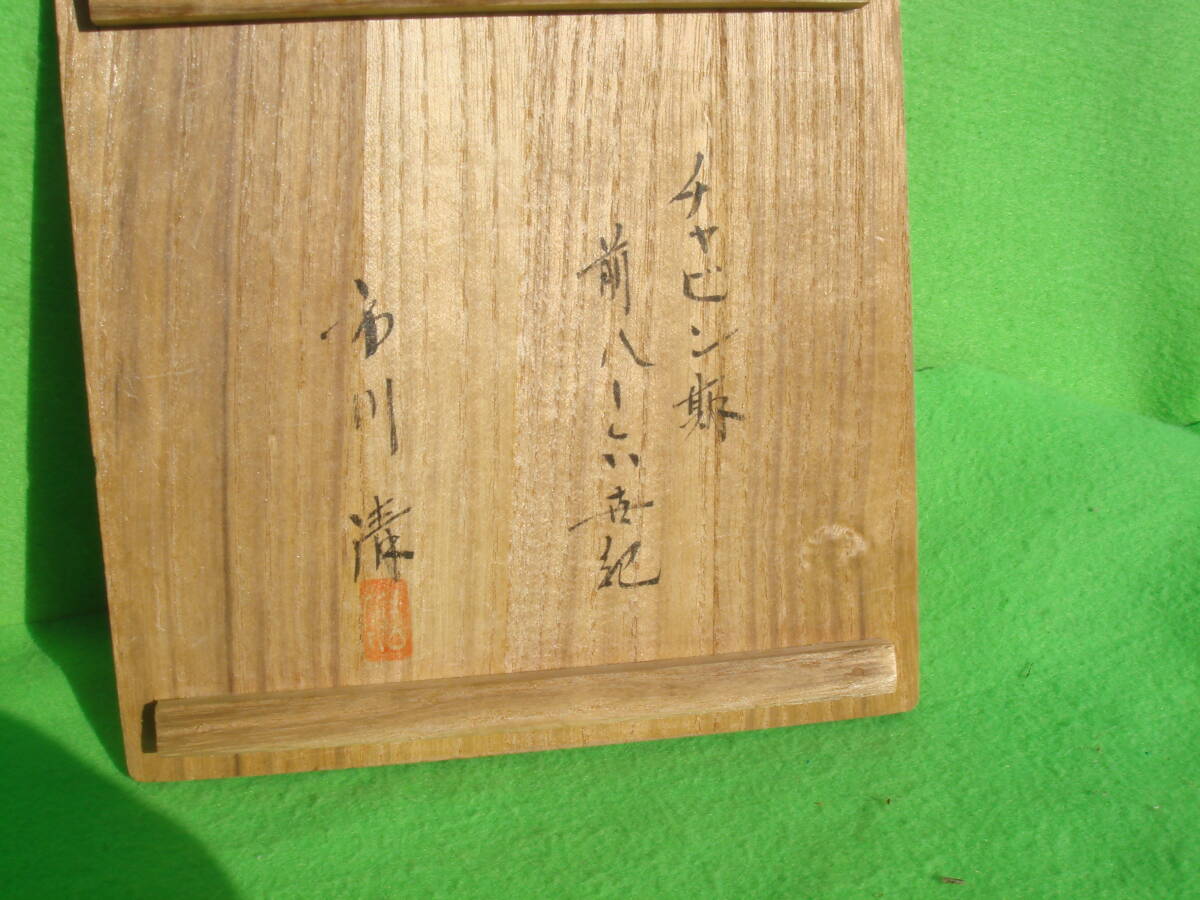 チャビン期
前八ー六世紀
市川 清